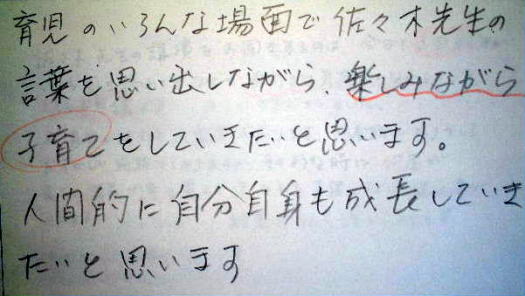 育児のいろんな場面で佐々木先生の
言葉を思い出しながら、楽しみながら
子育てをしていきたいと思います。
人間的に自分自身も成長していき
たいと思います